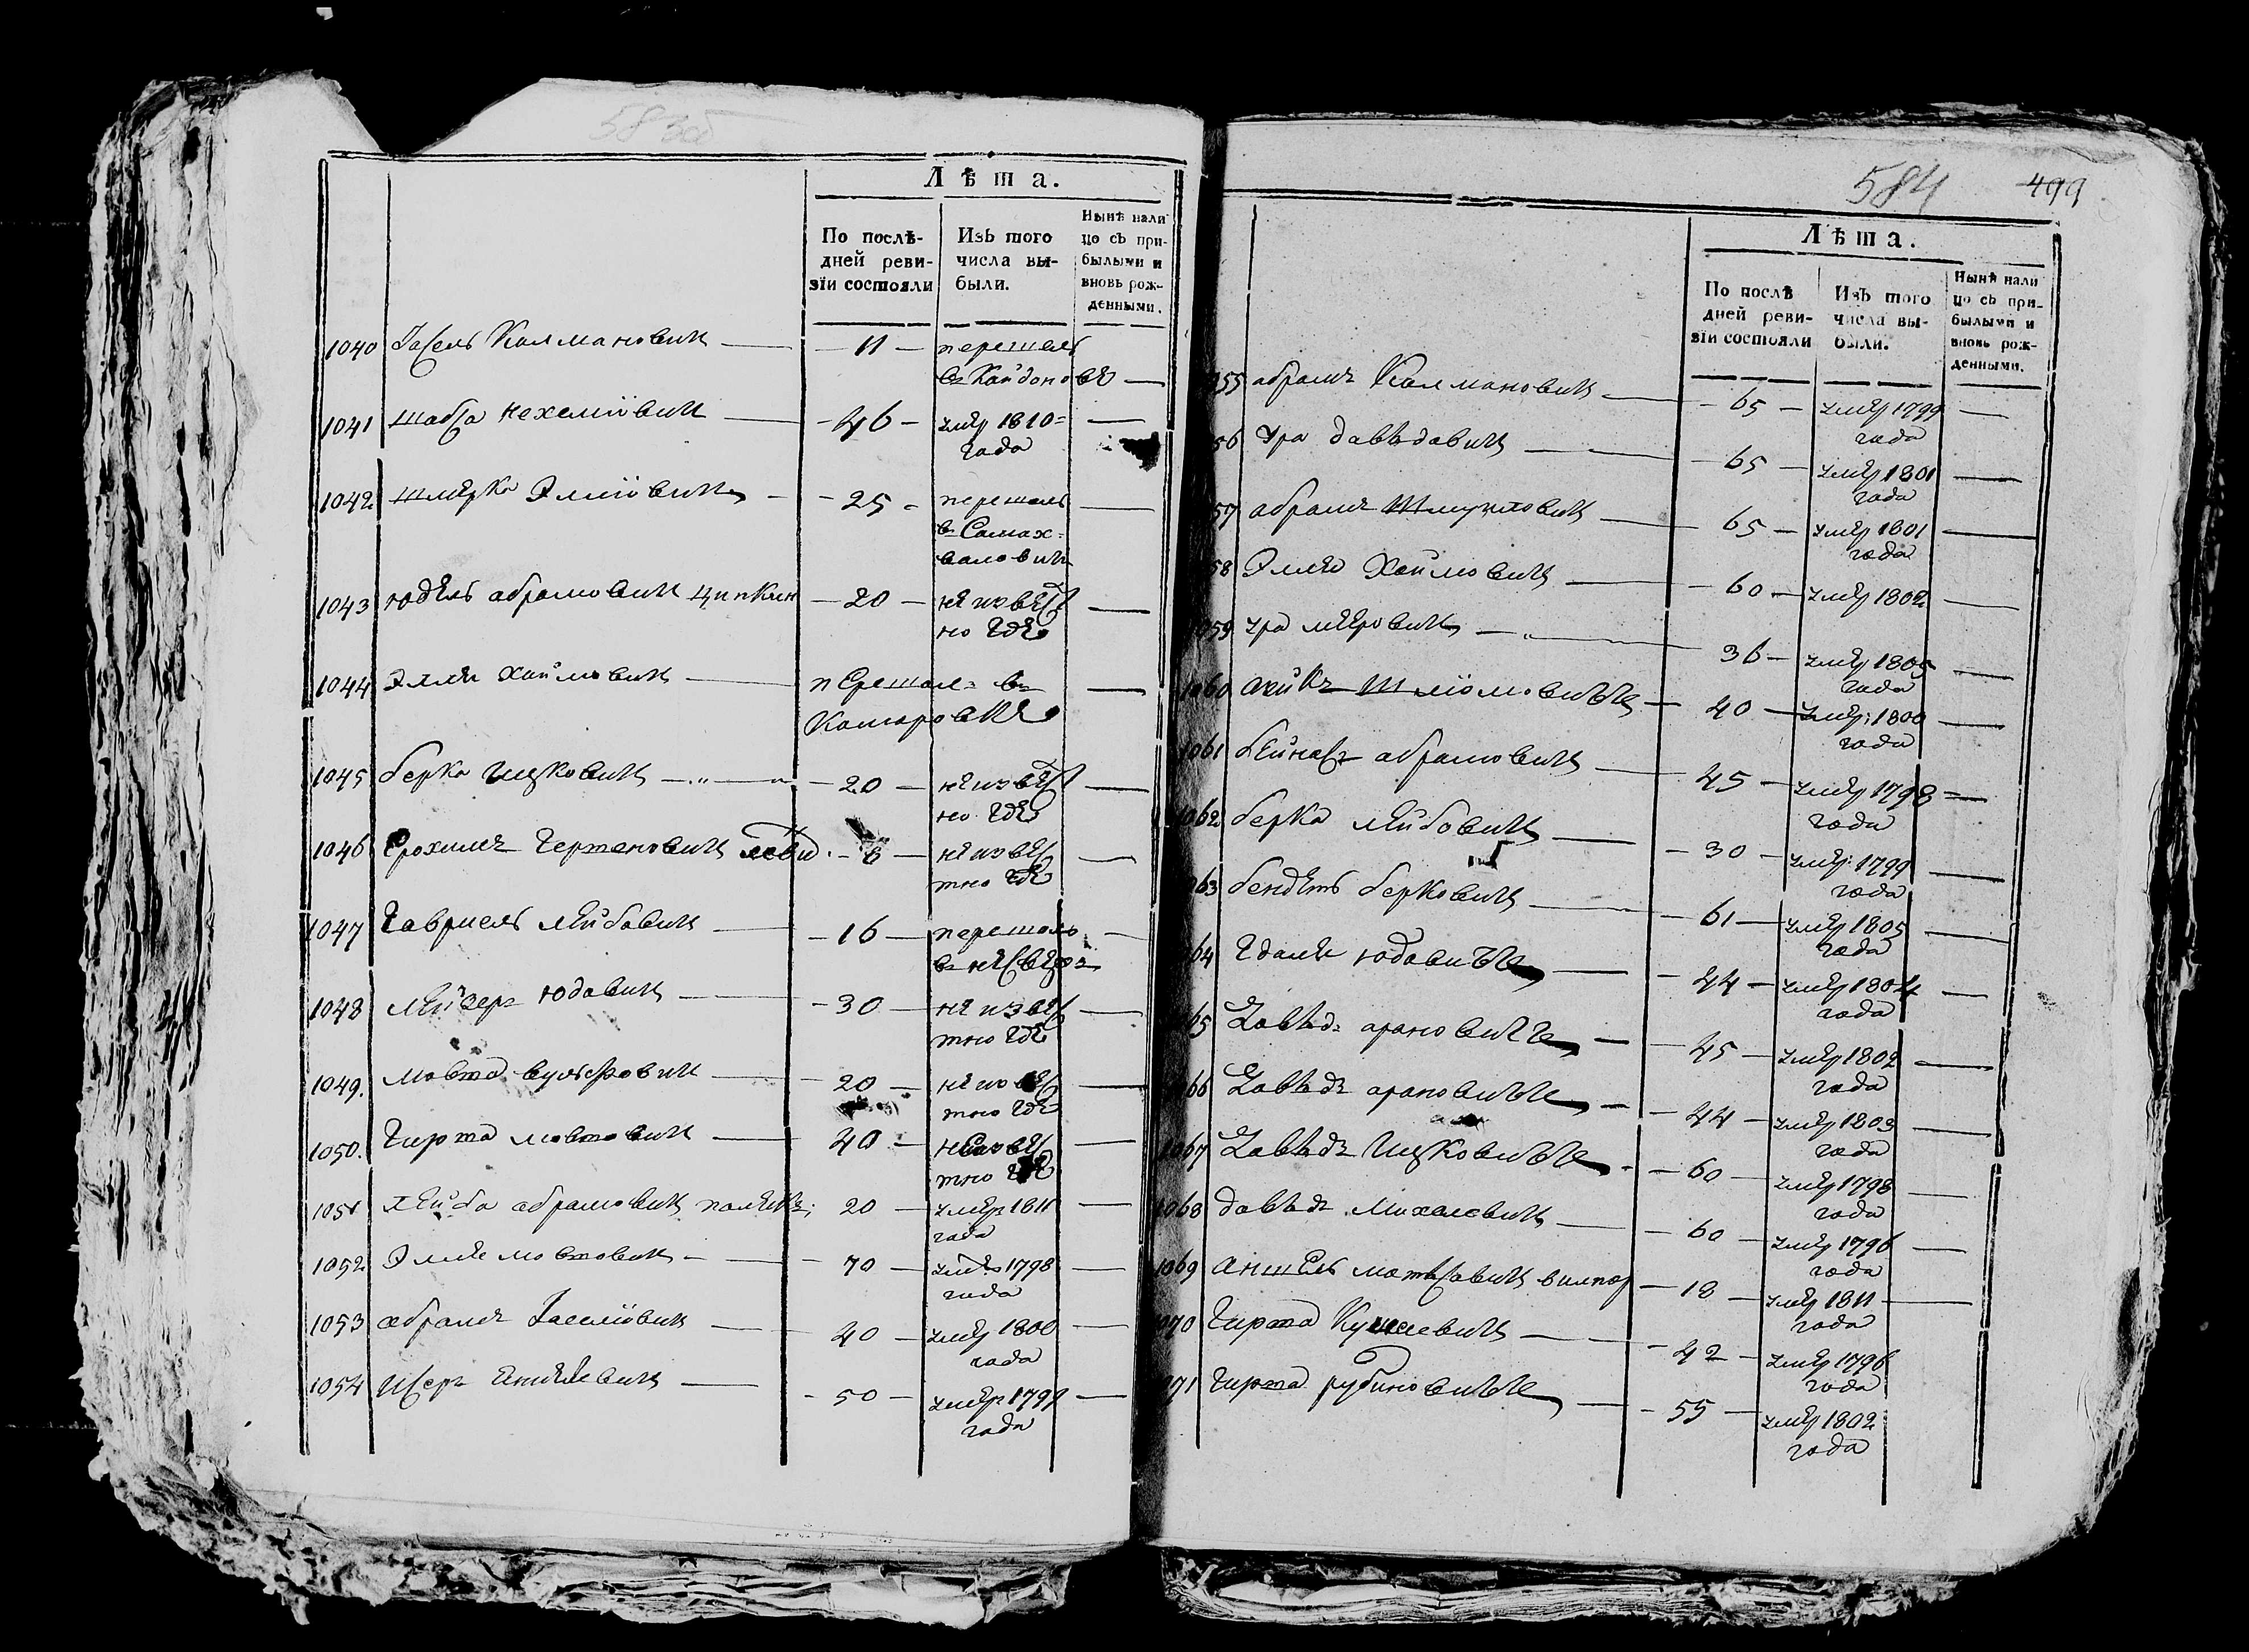 583об
Лѣта.
По послѣ-
дней реви-
зіи состояли
Изъ того
числа вы-
были.
Нынѣ нали
цо съ при-
былыми и
вновь рож-
денными.
1040 Іосель Калмановичь — 11 — перешель
въ Койдоновѣ —
1041 шабса нехеміовичь — 46 — умер 1810 =
года
1042 шмерка Эліовичь — 25 - перешель —
в Самах=
валовичи
1043 юдель абрамовичь ципкин — 20 — неизвест —
но где
1044 Элия хаймовичь — перешол= в —
Комаровке
1045 берка Ицковичь — 20 — неизвест —
но где
1046 Ерохимъ Гершеновичь — 6 — неизвес —
тно где
1047 Гавриель лейбовичь — 16 — перешоль —
1048 Мейеръ юдовичь — 30 — неизвес —
тно где
1049. Мовша вульфовичь — 20 — неизвес —
тно где
1050. Гирша мовшовичь — 40 — неизвес —
тно где
1051 лейба абрамовичь 20 — умеръ 1811 —
года
1052 Элие мовшовичь — 70 — умер 1798 —
года
1053 абрамъ — 40 — умер 1800 —
года
1054 Исеръ — 50 — умеръ 1799 —
года
584 499
Лѣта.
По послѣ
дней реви-
зіи состояли
Изъ того
числа вы-
были.
Нынѣ нали
цо съ при-
былыми и
вновь рож-
денными.
55 абрамъ Калмановичь — 65 — умер 1799 —
года
56 ура давыдовичь — 65 — умер 1801 —
года
57 абрамъ Шмуйловичь — 65 — умер 1801 —
года
58 Элия Хаймовичь — 60 — умер 1802 —
1059 ура мееровичь — 36 — умер 1805 —
года
1060 Шліомовичь — 40 — умер: 1800 —
года
1061 бейнасъ абрамовичь — 45 — умер 1798 —
года
1062 берка лейбовичь — 30 — умер: 1799 —
года
63 бендетъ берковичь — 61 — умер 1805 —
года
64 Гдалия юдовичь — 44 — умер 1804 —
года
65 Давыдъ ароновичь — 45 — умер 1802 —
года
66 Давыдъ ароновичь — 44 — умер 1803 —
года
1067 Давыдъ Ицковичь — 60 — умер 1798 —
года
1068 давыдъ Михалевичь — 60 — умер 1796 —
года
1069 аншель — 18 — умер 1811 —
года
1070 Гирша — 42 — умер 1796
года
71 Гирша рубиновичь — 55 — умер 1802
года